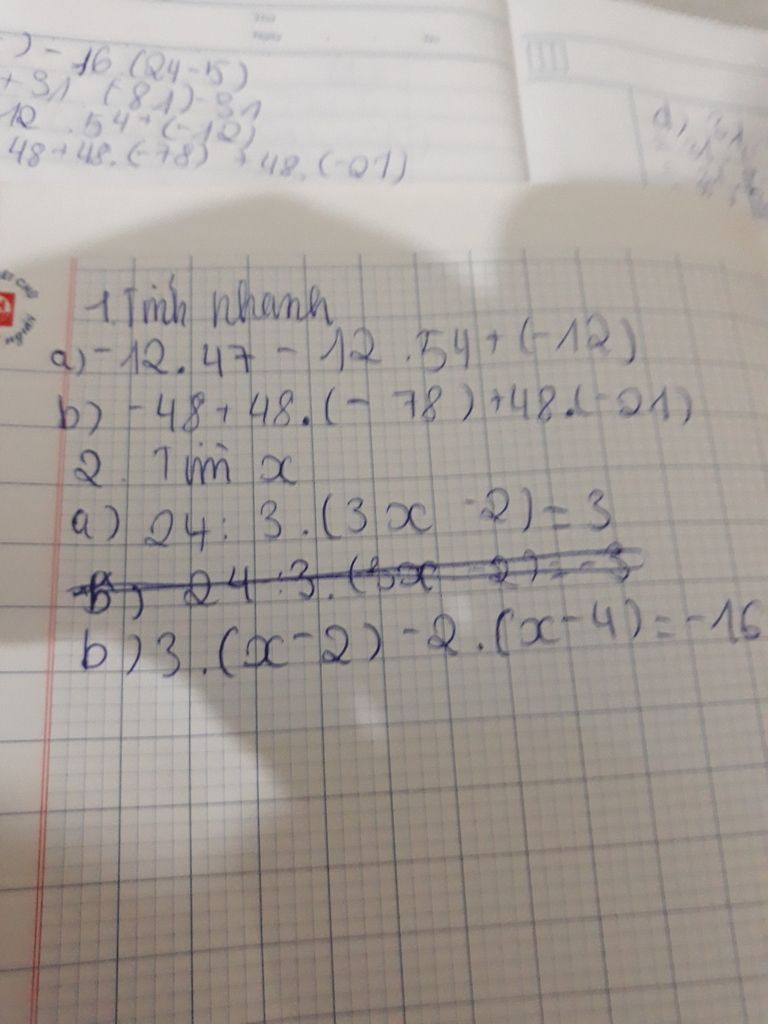 ) - 16.(24-15)
+ 31 (-81)-31
12 .54+(-12)
48+48.(-78) + 48.(-21)
1. Tính nhanh
a) -12.47 - 12 .54+(-12)
b) -48+48.(- 78)+48.(-21)
2. Tìm x
a) 24: 3.(3x -2)= 3
b) 24:3.(3x - 2)=-3
b) 3.(x-2)-2.(x-4)=-16